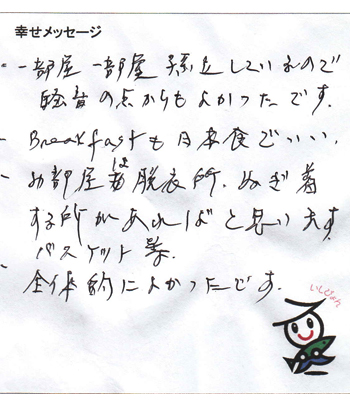 幸せメッセージ
- 一部屋一部屋孤立しているので
騒音の点からもよかったです。
- Breakfastも日本食でいい。
- お部屋は脱衣所、ぬぎ着
する所があればと思います。
バスケット等。
- 全体的によかったです。